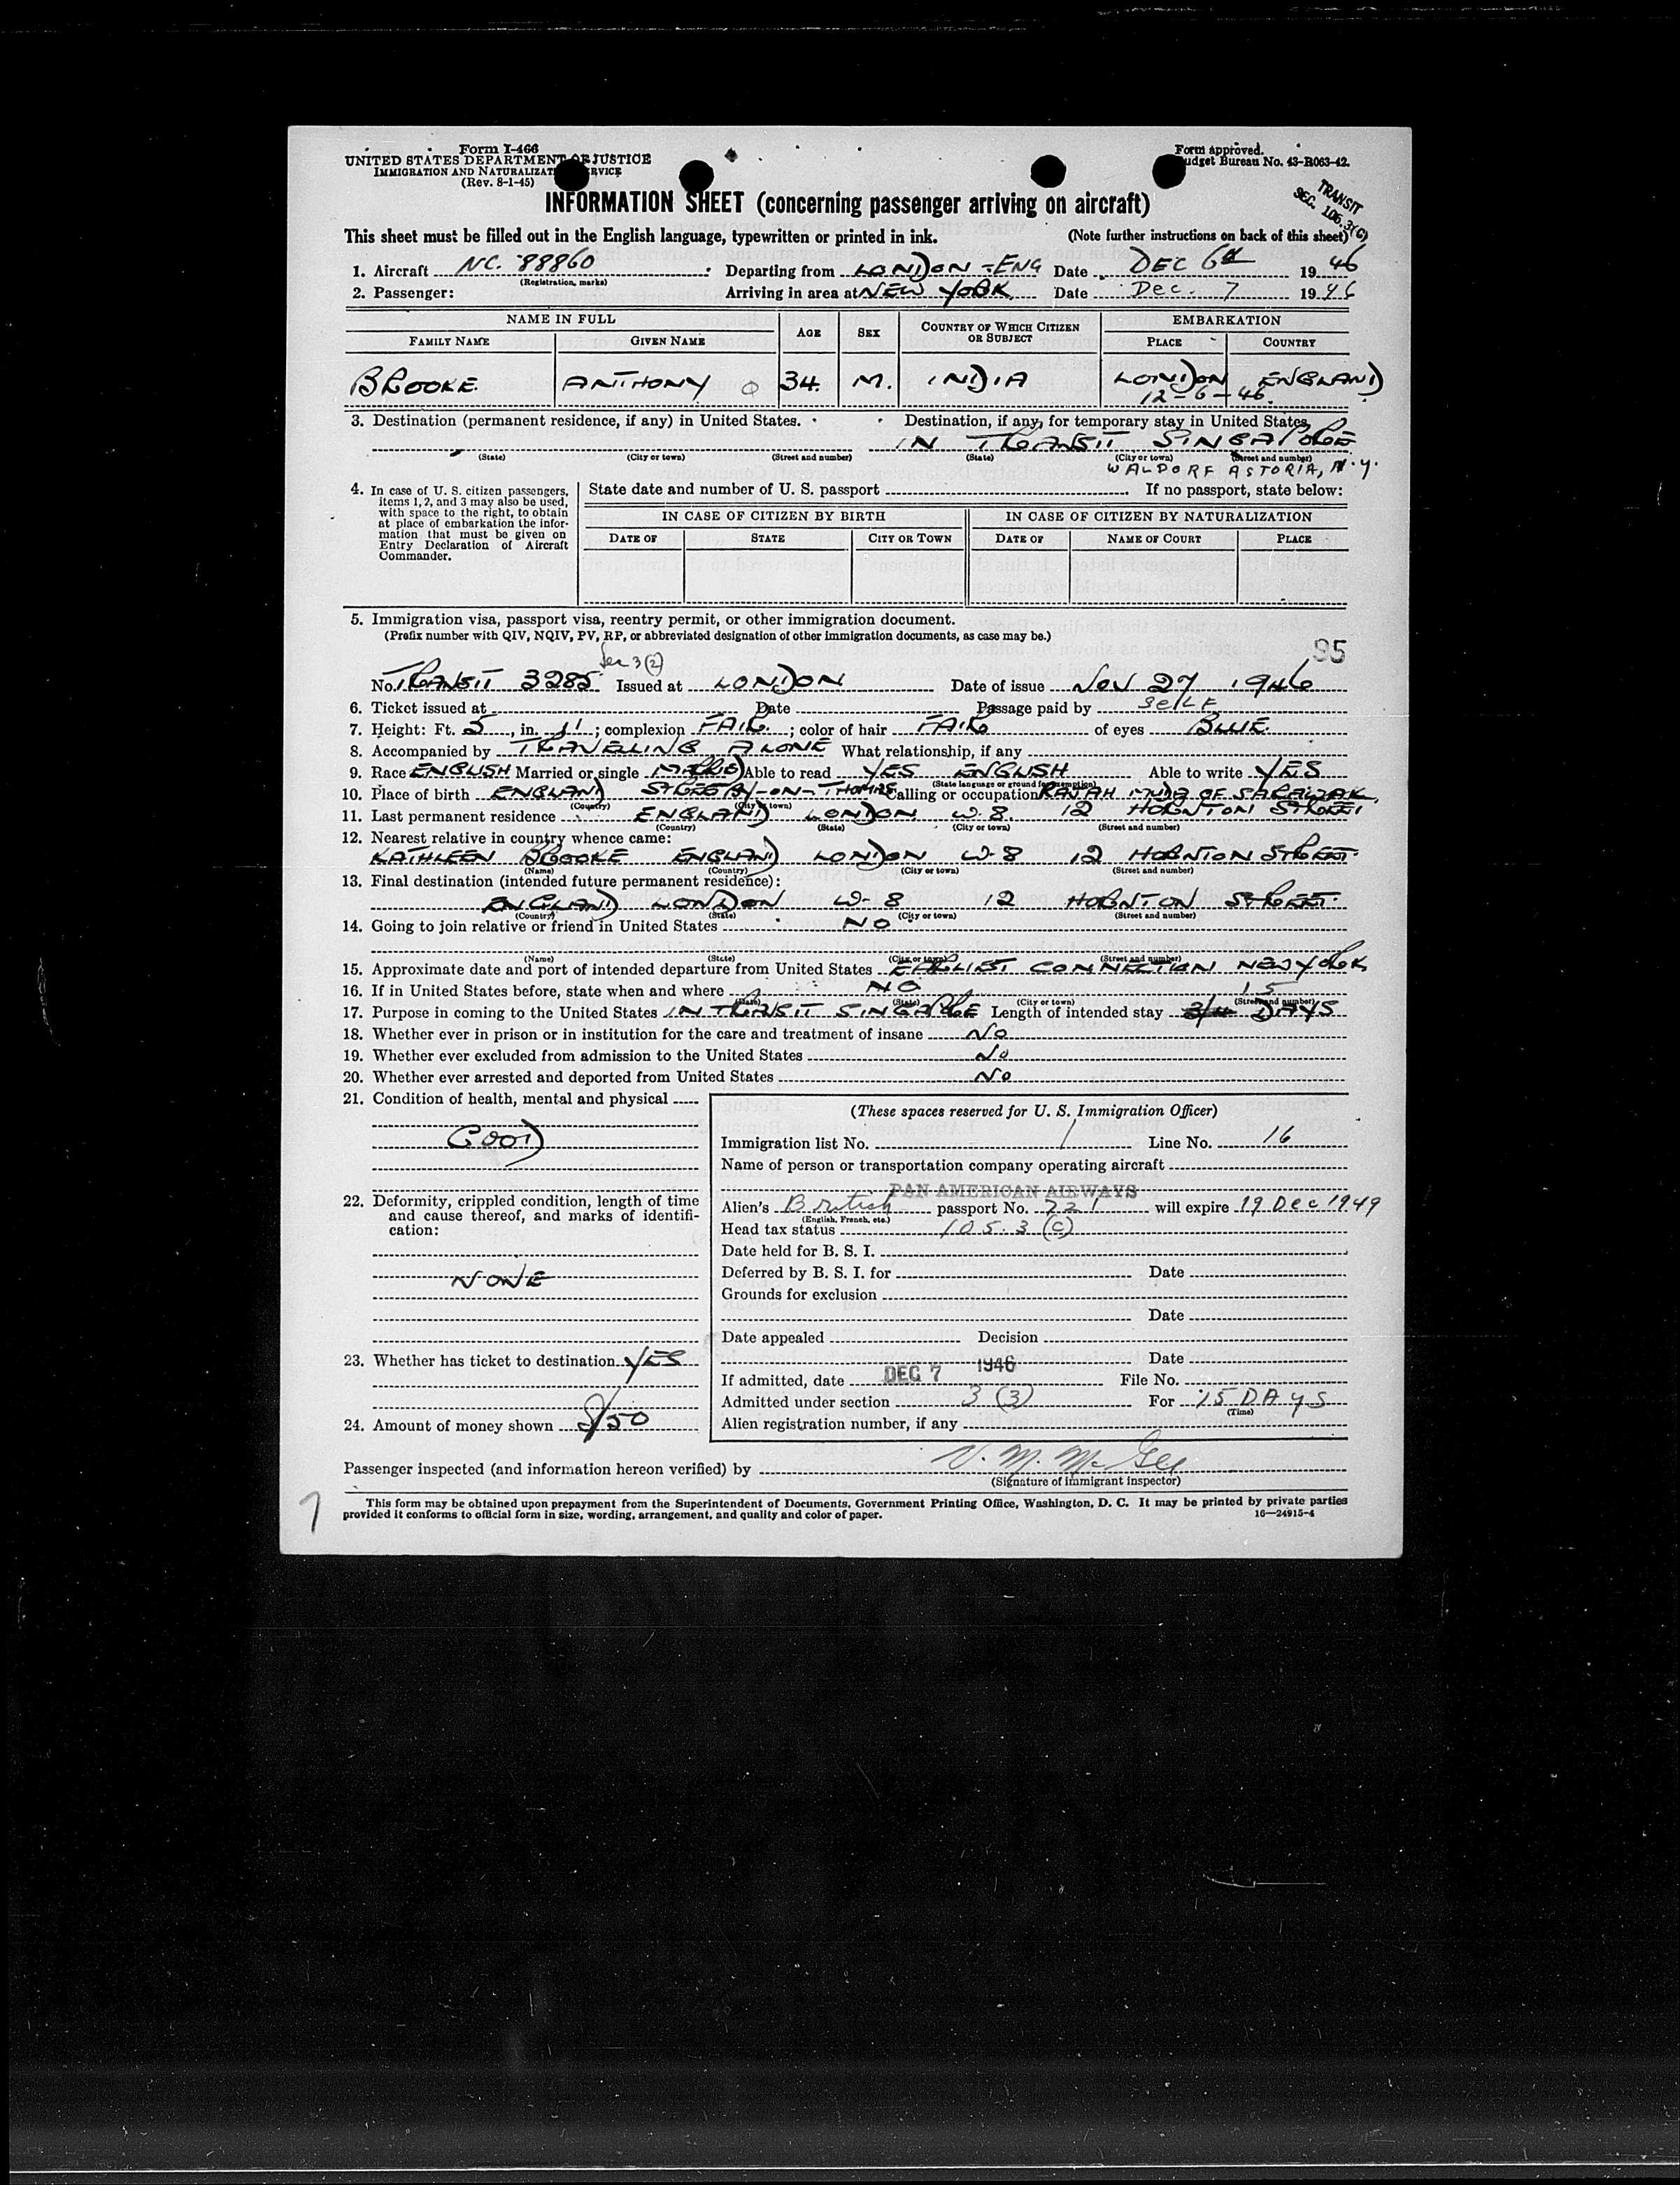 Form I-466
UNITED STATES DEPARTMENT OF JUSTICE
(Rev. 8-1-45)
Form approved.
Budget Bureau No. 43-R063-42.
TRANSIT
INFORMATION SHEET (concerning passenger arriving on aircraft)
This sheet must be filled out in the English language, typewritten or printed in ink. (Note further instructions on back of this sheet)
1. Aircraft NC. 88860 Departing from LONDON - ENG Date DEC 6th 1946
(Registration, marks)
2. Passenger: Arriving in area at NEW YORK Date Dec. 7 1946
NAME IN FULL AGE SEX COUNTRY OF WHICH CITIZEN OR SUBJECT EMBARKATION
FAMILY NAME GIVEN NAME PLACE COUNTRY
BROOKE ANTHONY 34. M. INDIA LONDON ENGLAND
12-6-46.
3. Destination (permanent residence, if any) in United States. Destination, if any, for temporary stay in United States,
IN TRANSIT SINGAPORE
(State) (City or town) (Street and number) (State) (City or town) (Street and number)
WALDORF ASTORIA, N.Y.
4. In case of U. S. citizen passengers, items 1, 2, and 3 may also be used, with space to the right, to obtain at place of embarkation the information that must be given on Entry Declaration of Aircraft Commander.
State date and number of U. S. passport If no passport, state below:
IN CASE OF CITIZEN BY BIRTH IN CASE OF CITIZEN BY NATURALIZATION
DATE OF STATE CITY OR TOWN DATE OF NAME OF COURT PLACE
5. Immigration visa, passport visa, reentry permit, or other immigration document.
(Prefix number with QIV, NQIV, PV, RP, or abbreviated designation of other immigration documents, as case may be.)
95
Sec 3(2)
No. TRANSIT 3285 Issued at LONDON Date of issue NOV 27 1946
6. Ticket issued at Date Passage paid by Self
7. Height: Ft. 5, in. 11; complexion FAIR; color of hair FAIR of eyes BLUE.
8. Accompanied by TRAVELLING ALONE What relationship, if any
9. Race ENGLISH Married or single Able to read YES ENGLISH Able to write YES
(State language or ground for exemption)
10. Place of birth ENGLAND Calling or occupation RAJAH MUDA OF SARAWAK
(Country) (City or town)
11. Last permanent residence ENGLAND LONDON W.8. 12 HORNTON STREET
(Country) (State) (City or town) (Street and number)
12. Nearest relative in country whence came:
KATHLEEN BROOKE ENGLAND LONDON W-8 12 HORNTON STREET.
(Name) (Country) (City or town) (Street and number)
13. Final destination (intended future permanent residence):
ENGLAND LONDON W-8 12 HORNTON STREET.
(Country) (State) (City or town) (Street and number)
14. Going to join relative or friend in United States NO
(Name) (State) (City or town) (Street and number)
15. Approximate date and port of intended departure from United States EARLIEST CONNECTION NEW YORK
16. If in United States before, state when and where NO
(Date) (State) (City or town) (Street and number)
17. Purpose in coming to the United States IN TRANSIT SINGAPORE Length of intended stay 15 DAYS
18. Whether ever in prison or in institution for the care and treatment of insane NO
19. Whether ever excluded from admission to the United States NO
20. Whether ever arrested and deported from United States NO
21. Condition of health, mental and physical
GOOD
22. Deformity, crippled condition, length of time and cause thereof, and marks of identification:
NONE
23. Whether has ticket to destination YES
24. Amount of money shown
(These spaces reserved for U. S. Immigration Officer)
Immigration list No. 1 Line No. 16
Name of person or transportation company operating aircraft
PAN AMERICAN AIRWAYS
Alien's British passport No. 221 will expire 19 Dec 1949
(English, French, etc.)
Head tax status 105.3 (c)
Date held for B. S. I.
Deferred by B. S. I. for Date
Grounds for exclusion
Date
Date appealed Decision
Date
If admitted, date DEC 7 1946 File No.
Admitted under section 3 (3) For 15 DAYS
(Time)
Alien registration number, if any
Passenger inspected (and information hereon verified) by V. M. McGee
(Signature of immigrant inspector)
This form may be obtained upon prepayment from the Superintendent of Documents, Government Printing Office, Washington, D. C. It may be printed by private parties
provided it conforms to official form in size, wording, arrangement, and quality and color of paper. 16—24915-4
7